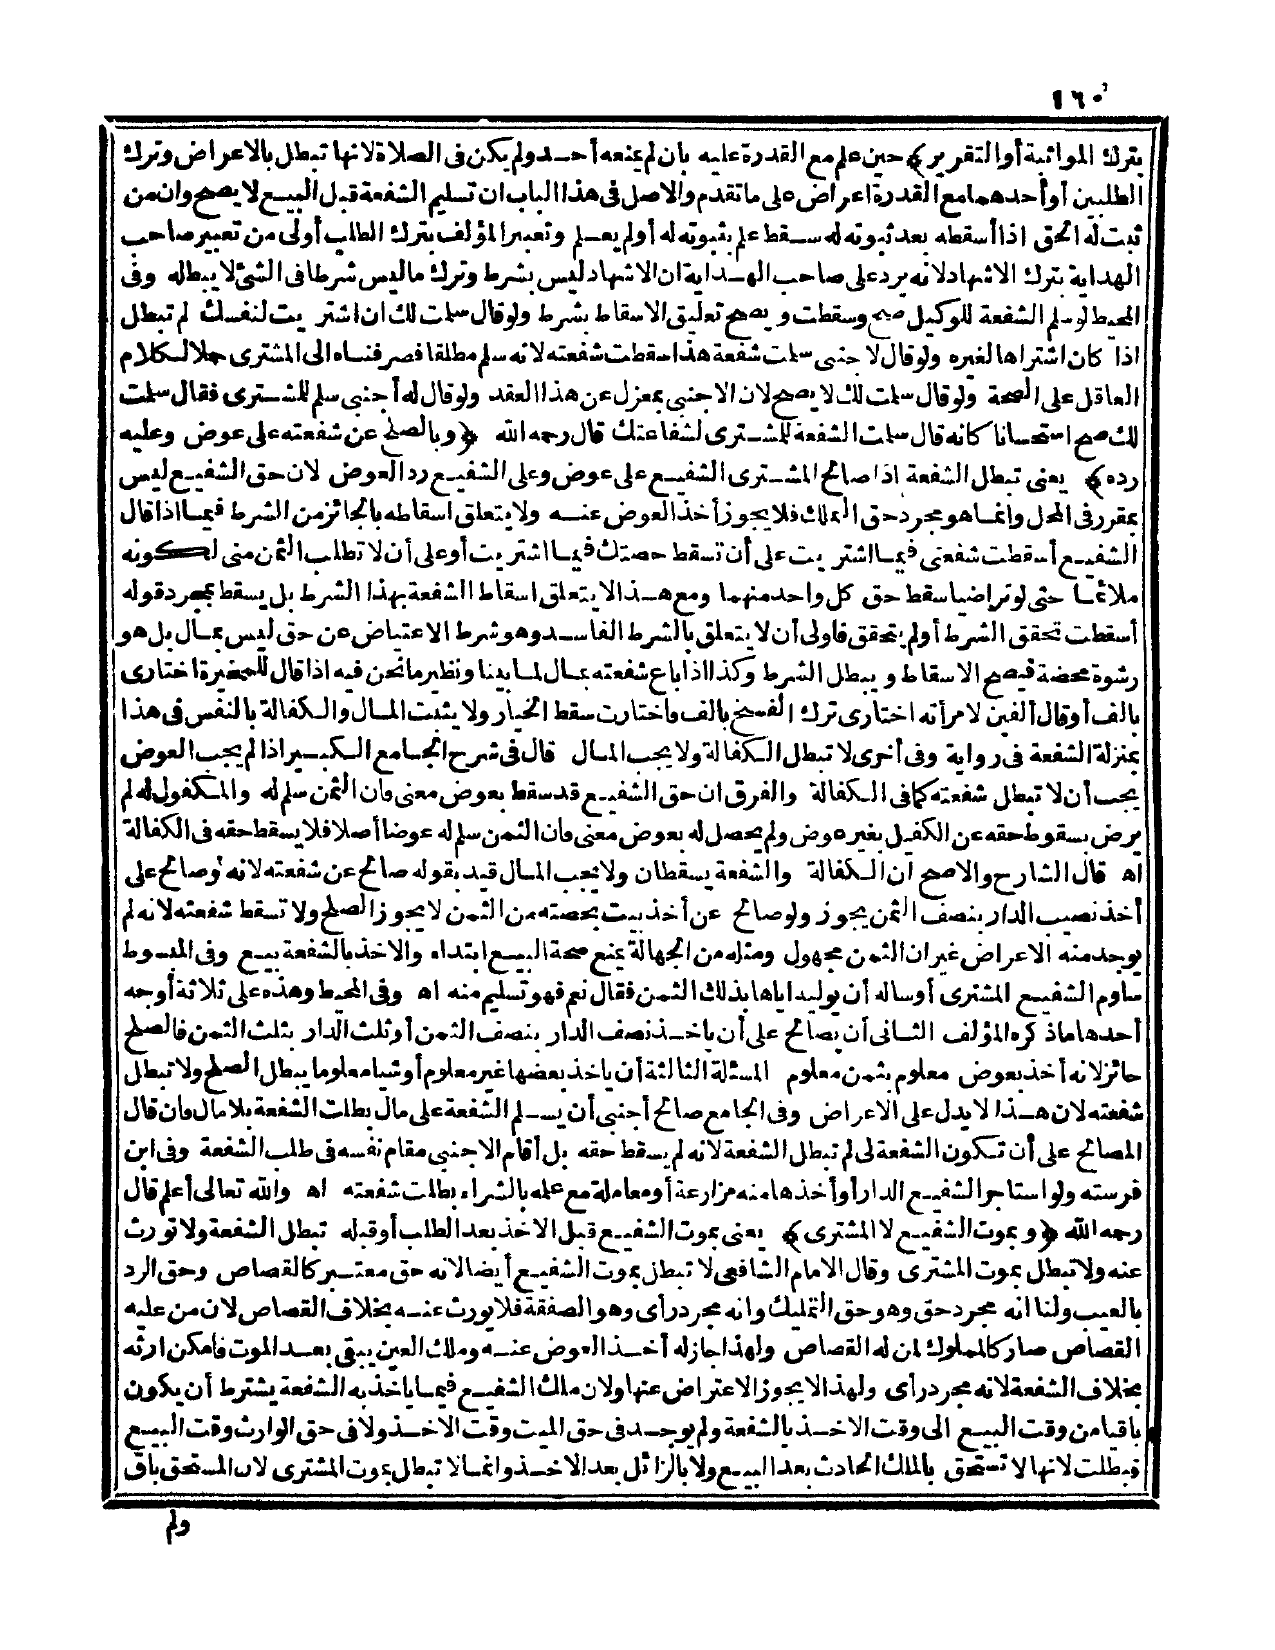 ١٦٠
بترك المواثبة أو التقرير﴾ حين علم مع القدرة عليه بان لم يمنعه أحد ولم يكن فى الصلاة لانها تبطل بالاعراض وترك
الطلبين أو أحدهما مع القدرة اعراض على ما تقدم والاصل فى هذا الباب ان تسليم الشفعة قبل البيع لا يصح وان من
ثبت له الحق اذا أسقطه بعد ثبوته له سقط علم بثبوته له أو لم يعلم وتعبير المؤلف بترك الطلب أولى من تعبير صاحب
الهداية بترك الاشهاد لانه يرد على صاحب الهداية ان الاشهاد ليس بشرط وترك ما ليس شرطا فى الشئ لا يبطله وفى
المحيط لو سلم الشفعة للوكيل صح وسقطت ويصح تعليق الاسقاط بشرط ولو قال سلمت لك ان اشتريت لنفسك لم تبطل
اذا كان اشتراها لغيره ولو قال لاجنبى سلمت شفعة هذا سقطت شفعته لانه سلم مطلقا فصرفناه الى المشترى حملا لكلام
العاقل على الصحة ولو قال سلمت لك لا يصح لان الاجنبى بمعزل عن هذا العقد ولو قال له أجنبى سلم للمشترى فقال سلمت
لك صح استحسانا كانه قال سلمت الشفعة للمشترى لشفاعتك قال رحمه الله ﴿وبالصلح عن شفعته على عوض وعليه
رده﴾ يعنى تبطل الشفعة اذا صالح المشترى الشفيع على عوض وعلى الشفيع رد العوض لان حق الشفيع ليس
بمقرر فى المحل وانما هو مجرد حق الملك فلا يجوز أخذ العوض عنه ولا يتعلق اسقاطه بالجائز من الشرط فيما اذا قال
الشفيع أسقطت شفعتى فيما اشتريت على أن تسقط حصتك فيما اشتريت أو على أن لا تطلب الثمن منى لكونه
ملائما حتى لو تراضيا سقط حق كل واحد منهما ومع هذا لا يتعلق اسقاط الشفعة بهذا الشرط بل يسقط بمجرد قوله
أسقطت تحقق الشرط أو لم يتحقق فاولى أن لا يتعلق بالشرط الفاسد وهو شرط الاعتياض عن حق ليس بمال بل هو
رشوة محضة فيصح الاسقاط ويبطل الشرط وكذا اذا باع شفعته بمال لما بينا ونظير ما نحن فيه اذا قال للمخيرة اختارى
بالف أو قال العنين لامرأته اختارى ترك الفسخ بالف فاختارت سقط الخيار ولا يثبت المال والكفالة بالنفس فى هذا
بمنزلة الشفعة فى رواية وفى أخرى لا تبطل الكفالة ولا يجب المال قال فى شرح الجامع الكبير اذا لم يجب العوض
يجب أن لا تبطل شفعته كما فى الكفالة والفرق ان حق الشفيع قد سقط بعوض معنى فان الثمن سلم له والمكفول له لم
يرض بسقوط حقه عن الكفيل بغير عوض ولم يحصل له بعوض معنى فان الثمن سلم له عوضا أصلا فلا يسقط حقه فى الكفالة
اه قال الشارح والاصح ان الكفالة والشفعة يسقطان ولا يجب المال قيد بقوله صالح عن شفعته لانه لو صالح على
أخذ نصيب الدار بنصف الثمن يجوز ولو صالح عن أخذ بيت بحصته من الثمن لا يجوز الصلح ولا تسقط شفعته لانه لم
يوجد منه الاعراض غير ان الثمن مجهول ومثله من الجهالة يمنع صحة البيع ابتداء والاخذ بالشفعة بيع وفى المبسوط
ساوم الشفيع المشترى أو ساله أن يوليه اياها بذلك الثمن فقال نعم فهو تسليم منه اه وفى المحيط وهذه على ثلاثة أوجه
أحدها ما ذكره المؤلف الثانى أن يصالح على أن ياخذ نصف الدار بنصف الثمن أو ثلث الدار بثلث الثمن فالصلح
جائز لانه أخذ بعوض معلوم بثمن معلوم المسئلة الثالثة أن ياخذ بعضها غير معلوم أو شيا معلوما يبطل الصلح ولا تبطل
شفعته لان هذا لا يدل على الاعراض وفى الجامع صالح أجنبى أن يسلم الشفعة على مال بطلت الشفعة بلا مال فان قال
المصالح على أن تكون الشفعة لى لم تبطل الشفعة لانه لم يسقط حقه بل أقام الاجنبى مقام نفسه فى طلب الشفعة وفى ابن
فرسته ولو استاجر الشفيع الدار أو أخذها منه مزارعة أو معاملة مع علمه بالشراء بطلت شفعته اه والله تعالى أعلم قال
رحمه الله ﴿وبموت الشفيع لا المشترى﴾ يعنى بموت الشفيع قبل الاخذ بعد الطلب أو قبله تبطل الشفعة ولا تورث
عنه ولا تبطل بموت المشترى وقال الامام الشافعى لا تبطل بموت الشفيع أيضا لانه حق معتبر كالقصاص وحق الرد
بالعيب ولنا انه مجرد حق وهو حق التمليك وانه مجرد رأى وهو الصفقة فلا يورث عنه بخلاف القصاص لان من عليه
القصاص صار كالمملوك لمن له القصاص ولهذا جاز له أخذ العوض عنه وملك العين يبقى بعد الموت فامكن ارثه
بخلاف الشفعة لانه مجرد رأى ولهذا لا يجوز الاعتراض عنها ولان ملك الشفيع فيما ياخذ به الشفعة يشترط أن يكون
باقيا من وقت البيع الى وقت الاخذ بالشفعة ولم يوجد فى حق الميت وقت الاخذ ولا فى حق الوارث وقت البيع
فبطلت لانها لا تستحق بالملك الحادث بعد البيع ولا بالزائل بعد الاخذ وانما لا تبطل بموت المشترى لان المستحق باق
ولم